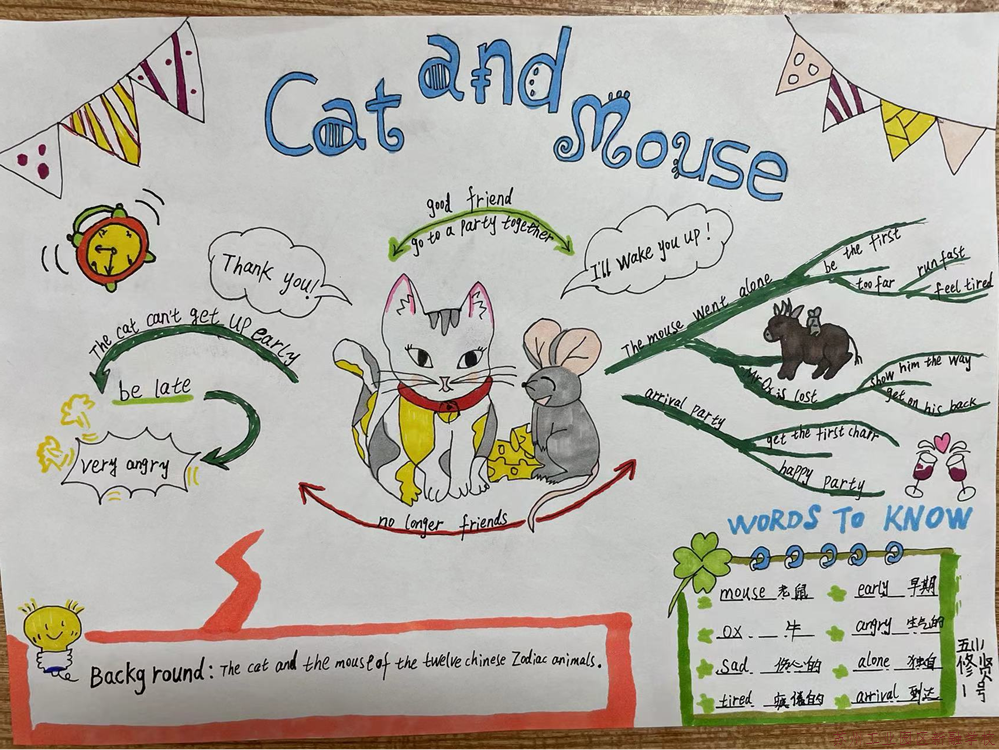 Cat and Mouse
good friend
go to a party together
Thank you!
I'll wake you up!
The cat can't get up early
be late
very angry
no longer friends
The mouse went alone
be the first
too far
run fast
feel tired
Mr Ox is lost
show him the way
get on his back
arrival party
get the first chair
happy party
WORDS TO KNOW
mouse 老鼠
early 早期
ox 牛
angry 生气的
sad 伤心的
alone 独自
tired 疲倦的
arrival 到达
Background: The cat and the mouse of the twelve chinese Zodiac animals.
1号